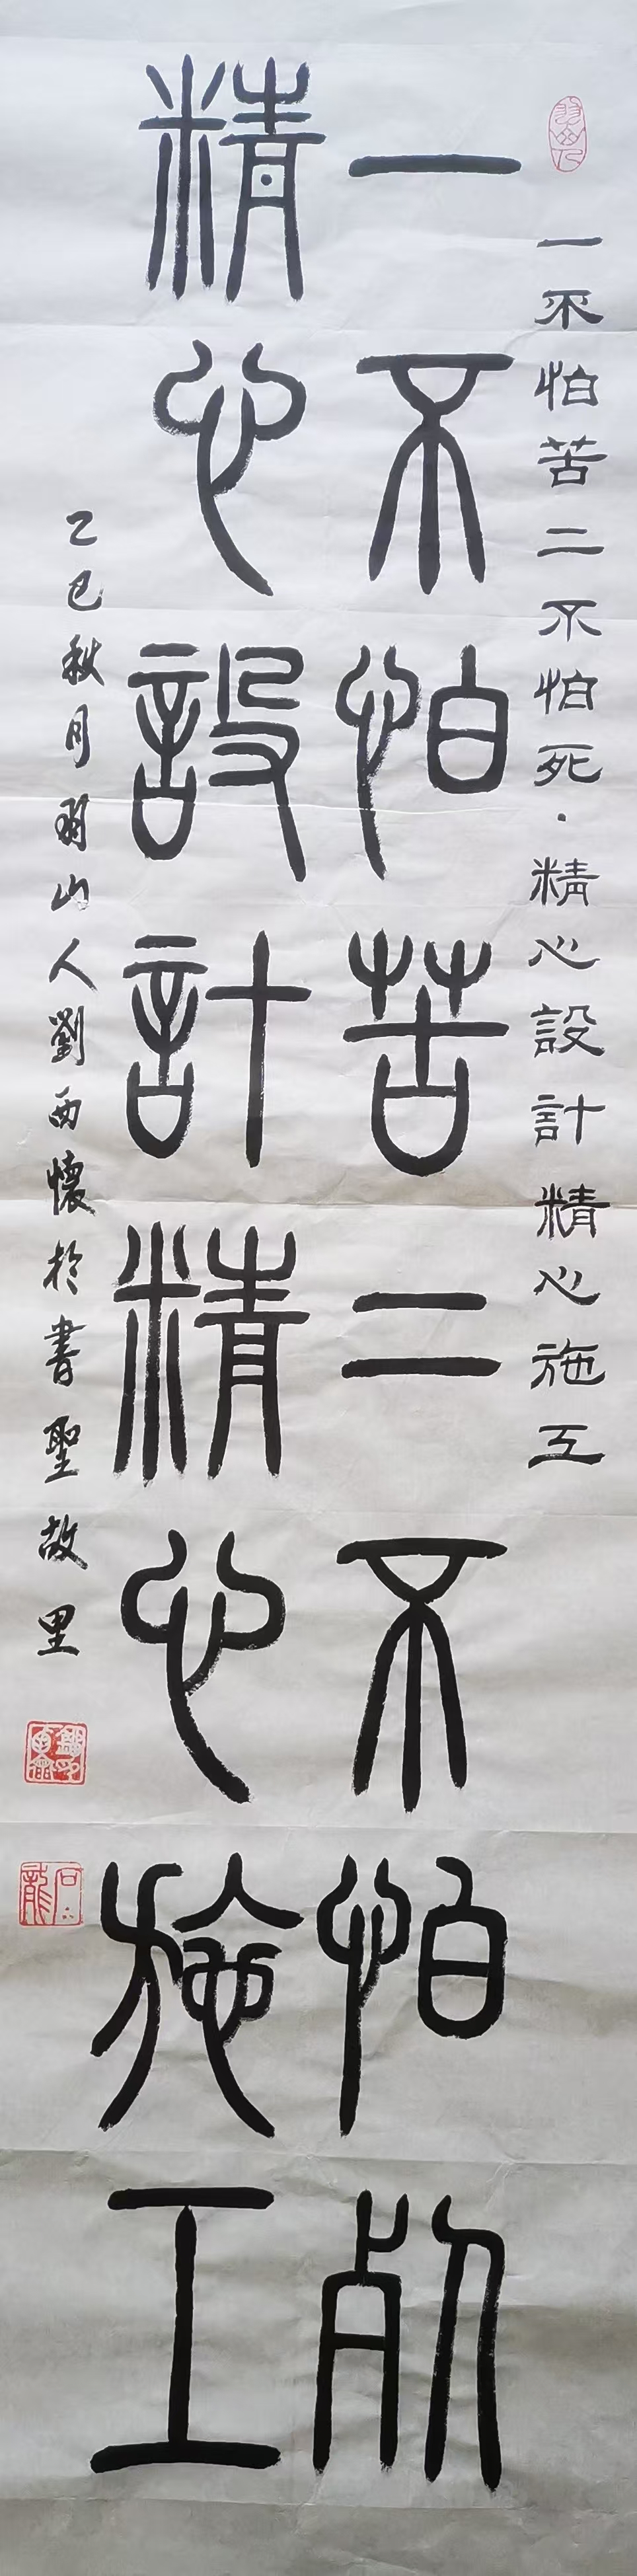 一不怕苦二不怕死·精心設計精心施工
一不怕苦二不怕死
精心設計精心施工
乙巳秋月羽山人劉西懷於書聖故里